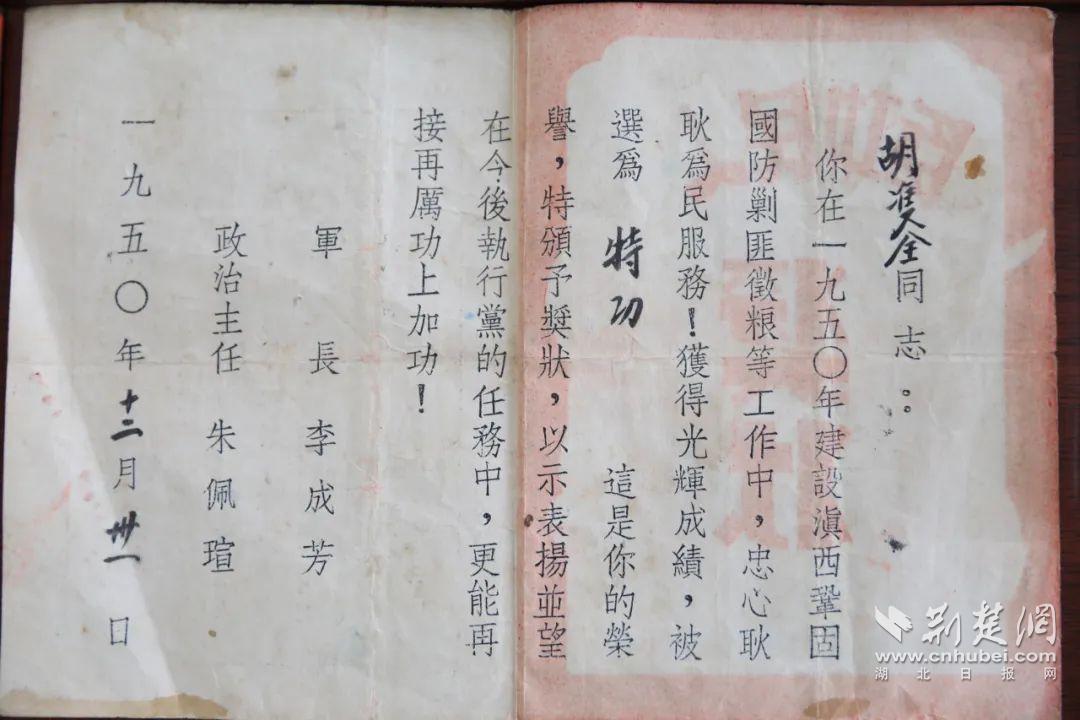 胡 全同志：
你在一九五〇年建設滇西鞏固
國防剿匪徵粮等工作中，忠心耿
耿爲民服務！獲得光輝成績，被
選爲 特功 這是你的榮
譽，特頒予獎狀，以示表揚並望
在今後執行黨的任務中，更能再
接再厲功上加功！
軍 長 李成芳
政治主任 朱佩瑄
一九五〇年十二月卅一日
荆楚網
www.cnhubei.com
湖北日报网